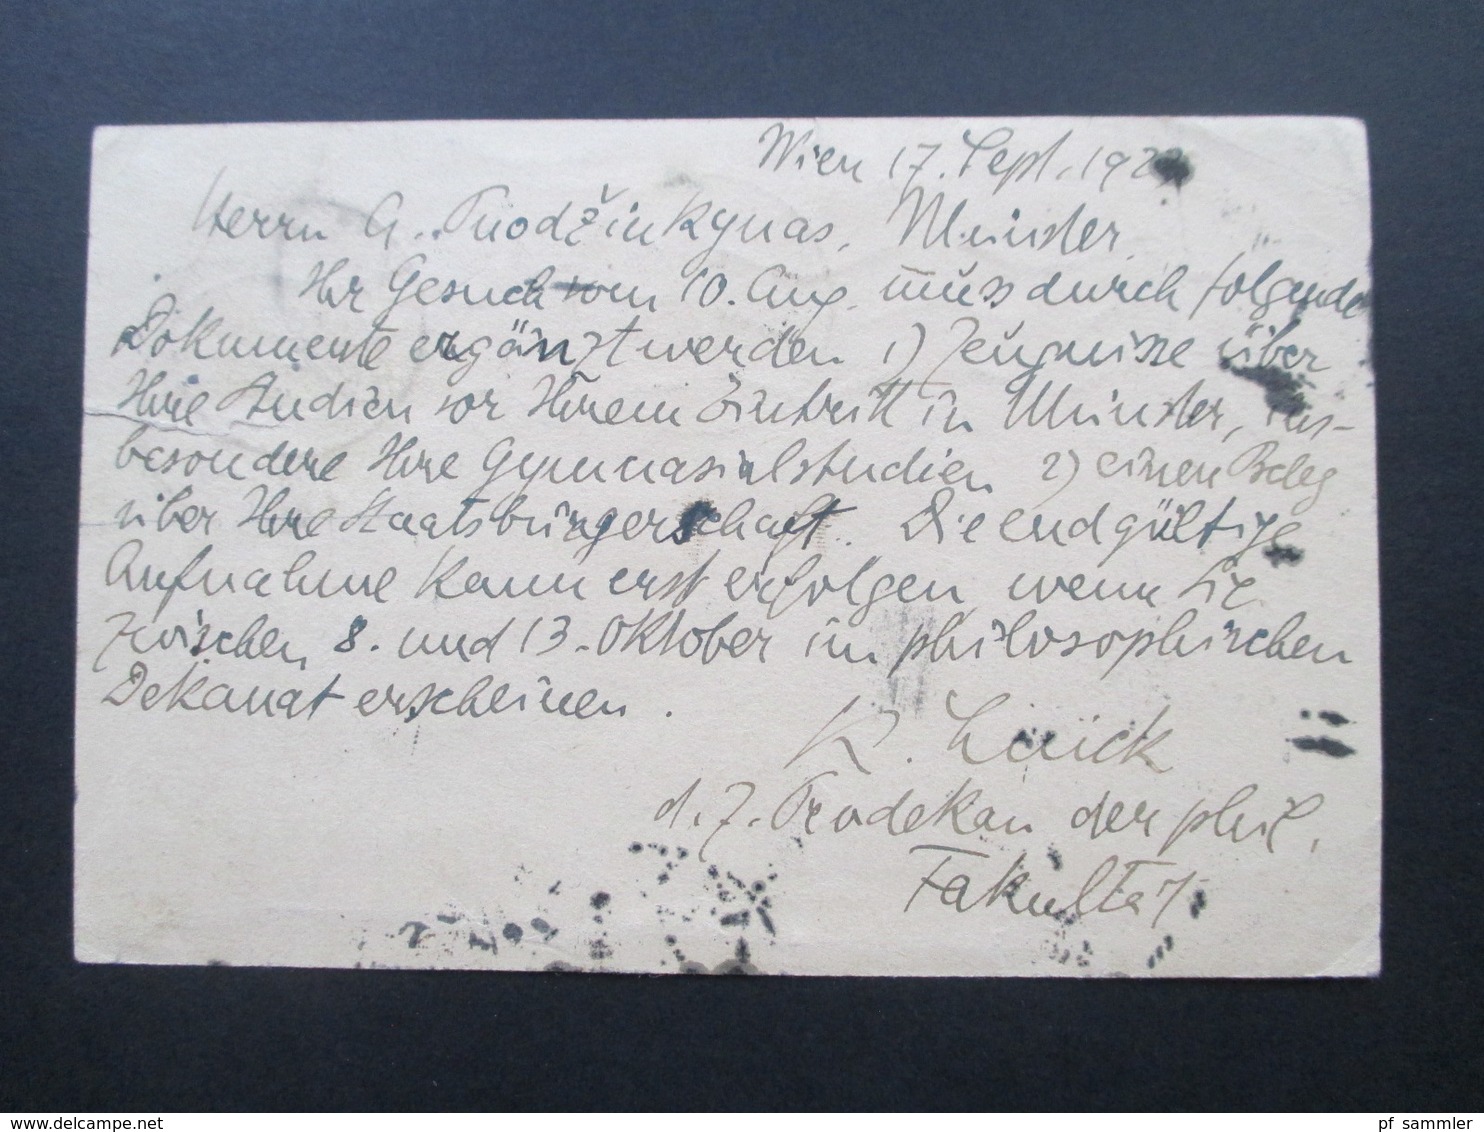 Wien 17. Sept. 192
Herrn A. Münster
Ihr Gesuch vom 10. Aug. muss durch folgende
Dokumente ergänzt werden 1) Zeugnisse über
Ihre Studien vor Ihrem Eintritt in Münster, ins-
besondere Ihre Gymnasialstudien 2) einen Beleg
über Ihre Staatsbürgerschaft. Die endgültige
Aufnahme kann erst erfolgen wenn Sie
zwischen 8. und 13. Oktober im philosophischen
Dekanat erscheinen.
K. Luick
d. Z. Prodekan der phil.
Fakultät
pf_sammler